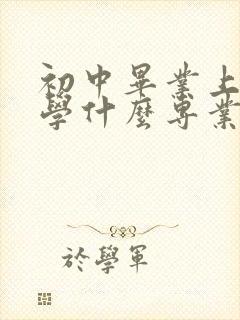 初中畢業上
學什麼專業
於學軍